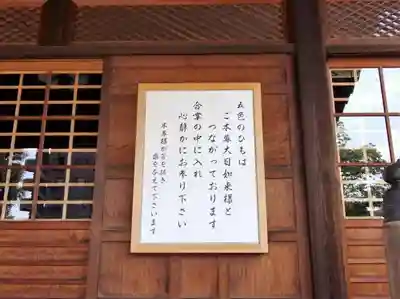 五色のひもは
ご本尊大日如来様と
つながっております
合掌の中に入れ
心静かにお参り下さい
本尊様が苦を抜き
楽を与えて下さいます